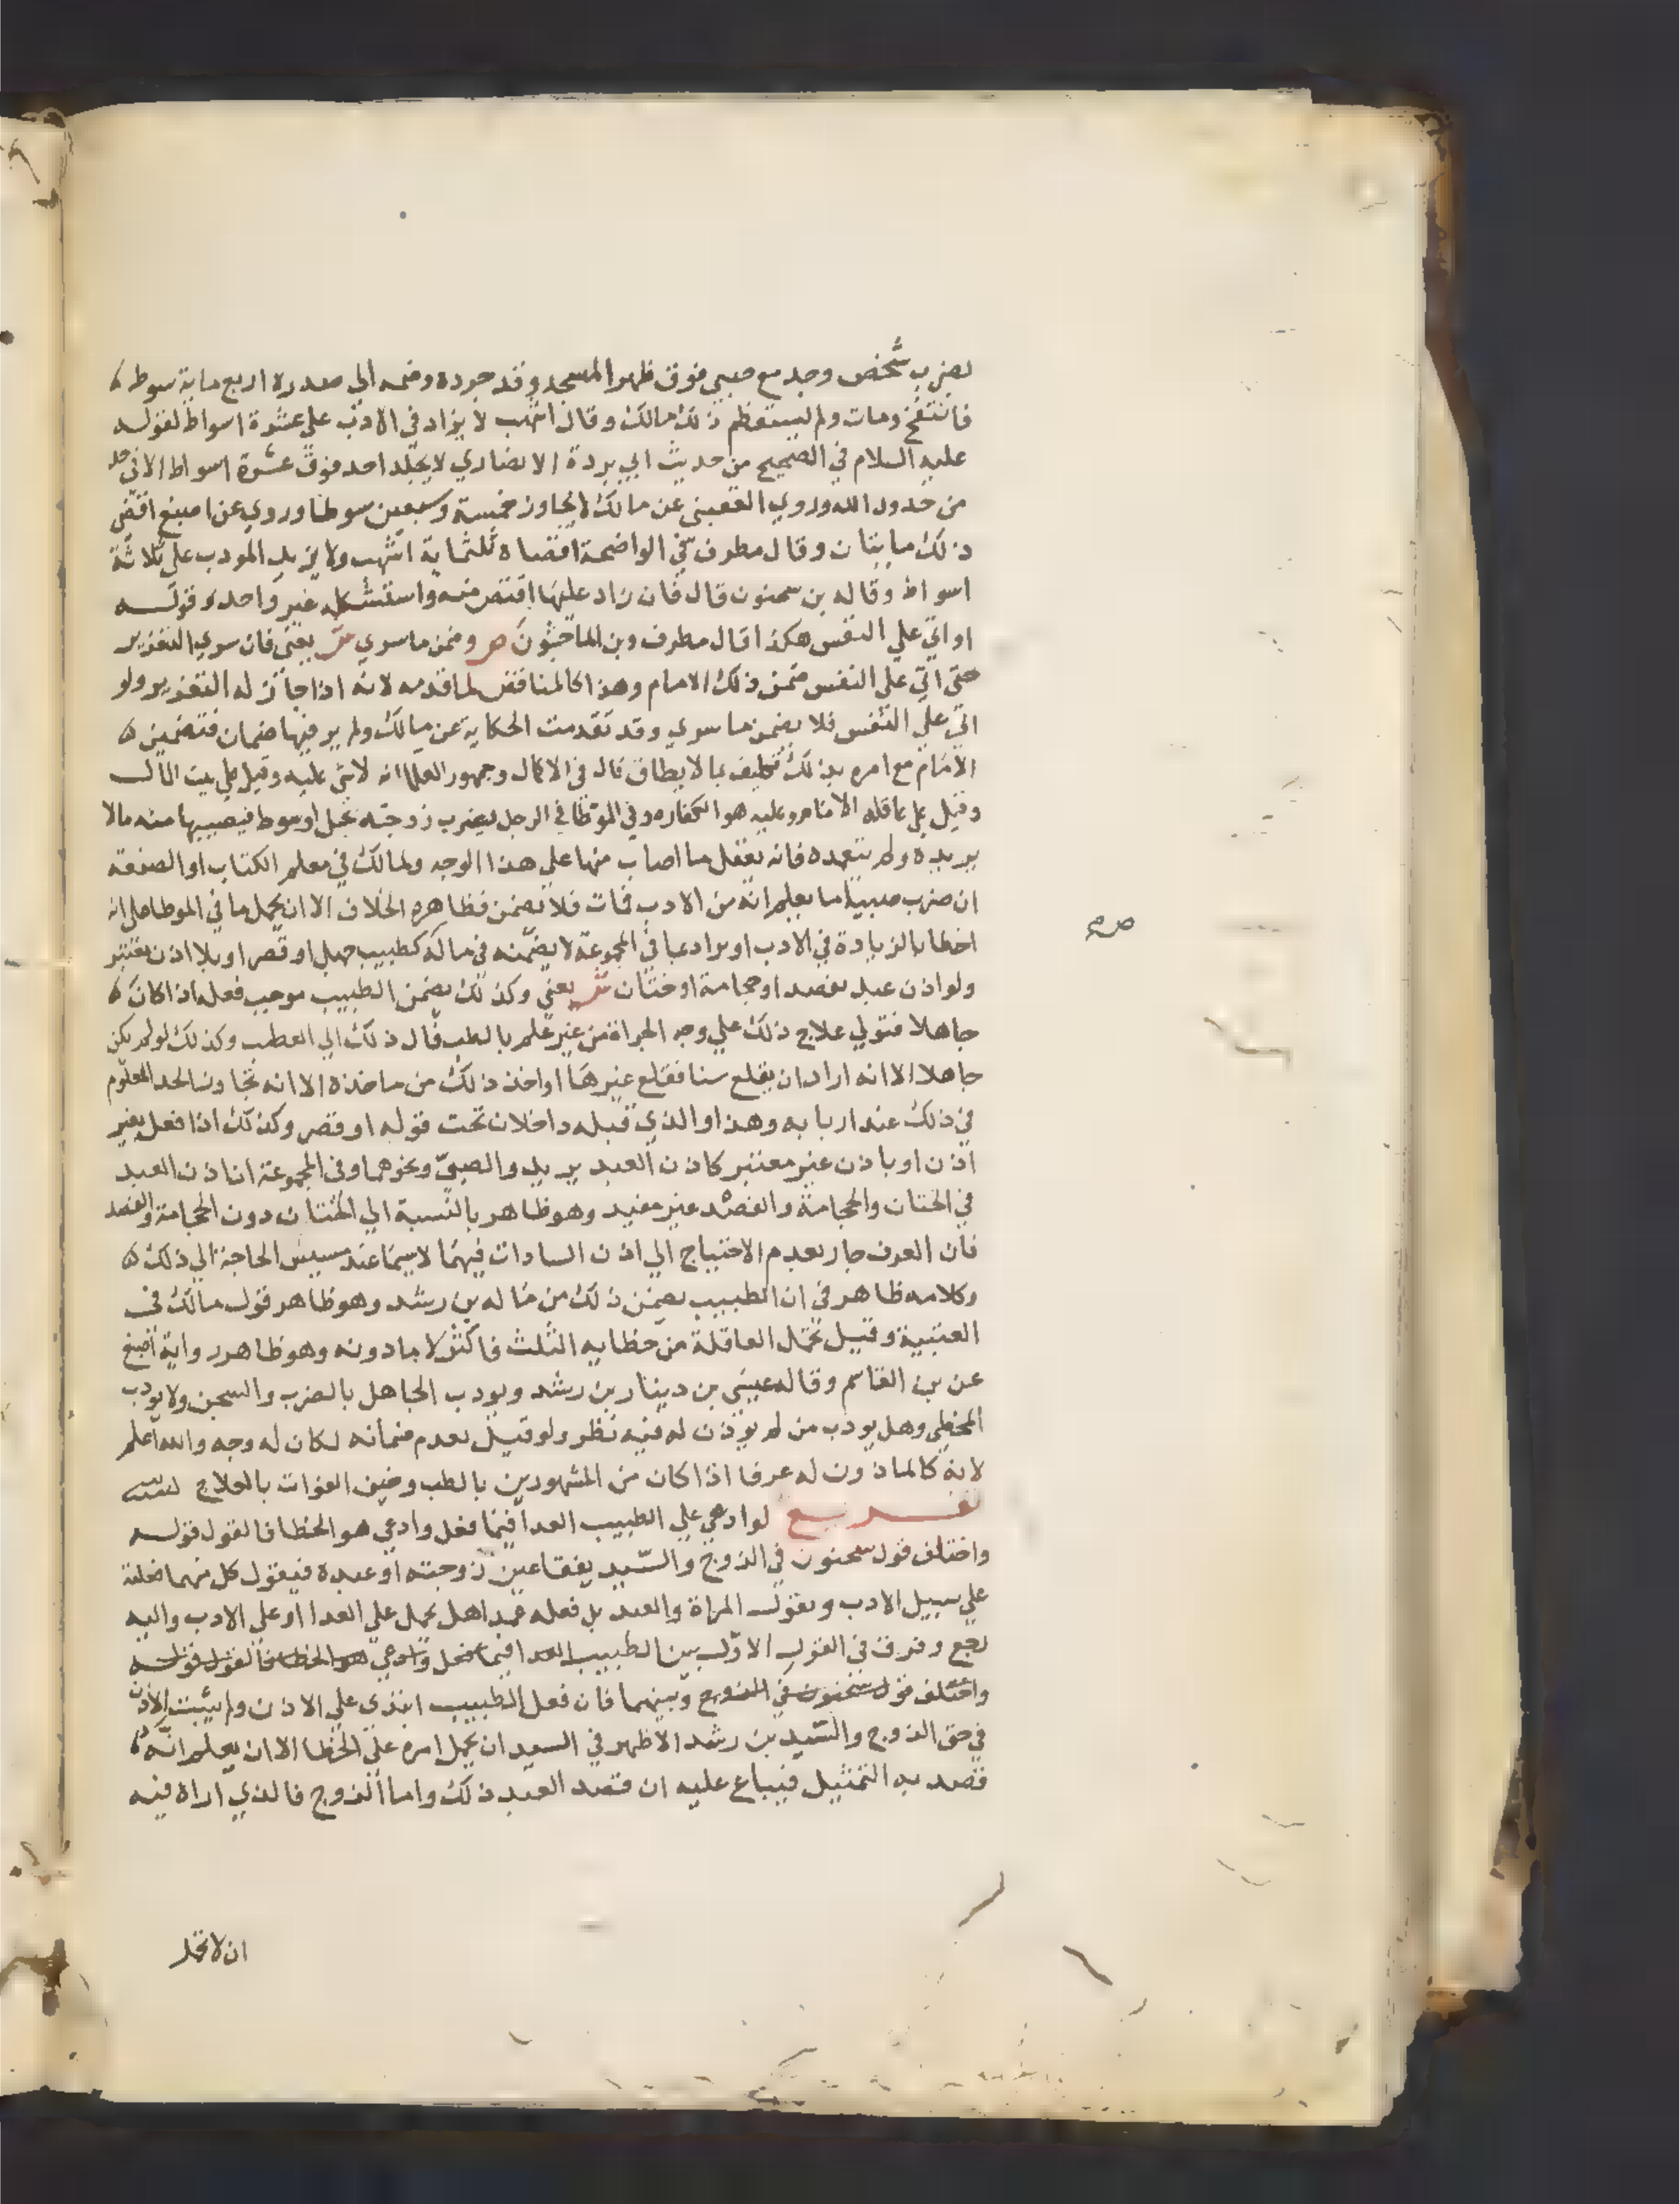 بضرب شخص وجد مع صبي فوق ظهر المسجد وقد جرده وضمه الي صدره اربع ماية سوط
فانتفخ ومات ولم يستعظم ذلك مالك وقال اشهب لا يزاد في الادب علي عشرة اسواط لقوله
عليه السلام في الصحيح من حديث ابي بردة الانصاري لا يجلد احد فوق عشرة اسواط الا في حد
من حدود الله وروي القعنبي عن مالك لا يجاوز خمسة وسبعين سوطا وروي عن اصبغ اقصي
ذلك مايتان وقال مطرف في الواضحة اقصاه ثلثماية اشهب ولا يزيد المودب علي ثلاثة
اسواط وقاله بن سحنون قال فان زاد عليها اقتص منه واستشكله غير واحد وقوله
او اتي علي النفس هكذا قال مطرف وبن الماجشون ص وضمن ما سري ش يعني فان سري التعزير
حتي اتي علي النفس ضمن ذلك الامام وهذا كالمناقض لما قدمه لانه اذا جاز له التعزير ولو
اتي علي النفس فلا يضمن ما سري وقد تقدمت الحكاية عن مالك ولم ير فيها ضمان فتضمين
الامام مع امره بذلك تكليف بما لا يطاق قال في الاكمال وجمهور العلما انه لا شي عليه وقيل علي بيت المال
وقيل علي عاقلة الامام وعليه هو الكفاره وفي الموطا في الرجل يضرب زوجته بحبل او سوط فيصيبها منه مالا
يريده ولم يتعمده فانه يعقل ما اصاب منها علي هذا الوجه ولمالك في معلم الكتاب او الصنعة
ان ضرب صبيا ما يعلم انه من الادب فمات فلا يضمن فظاهره الخلاف الا ان يحمل ما في الموطا علي انه
اخطا بالزيادة في الادب او يراد بما في المجموعة لا يضمنه في ماله كطبيب جهل او قصر او بلا اذن يعتبر
ولو اذن عبد بفصد او حجامة او ختان ش يعني وكذلك يضمن الطبيب موجب فعله اذا كان
جاهلا فتولي علاج ذلك علي وجه الجراة من غير علم بالطب فال ذلك الي العطب وكذلك لو لم يكن
جاهلا الا انه اراد ان يقلع سنا فقلع غيرها او اخذ ذلك من ماخذه الا انه تجاوز الحد المعلوم
في ذلك عند اربابه وهذا والذي قبله داخلان تحت قوله او قصر وكذلك اذا فعل بغير
اذن او باذن غير معتبر كاذن العبد يريد والصبي ونحوهما وفي المجموعة ان اذن العبد
في الختان والحجامة والفصد غير مفيد وهو ظاهر بالنسبة الي الختان دون الحجامة والفصد
فان العرف جار بعدم الاحتياج الي اذن السادات فيهما لا سيما عند مسيس الحاجة الي ذلك
وكلامه ظاهر في ان الطبيب يضمن ذلك من ماله بن رشد وهو ظاهر قول مالك في
العتبية وقيل تحمل العاقلة من خطايه الثلث فاكثر لا ما دونه وهو ظاهر رواية اصبغ
عن بن القاسم وقاله عيسي بن دينار بن رشد ويودب الجاهل بالضرب والسجن ولا يودب
المخطي وهل يودب من لم يوذن له فيه نظر ولو قيل بعدم ضمانه لكان له وجه والله اعلم
لانه كالماذون له عرفا اذا كان من المشهورين بالطب وخيف الفوات بالعلاج
تفريع لو ادعي علي الطبيب العدا فيما فعل وادعي هو الخطا فالقول قوله
واختلف قول سحنون في الزوج والسيد يفقا عين زوجته او عبده فيقول كل منهما فعلته
علي سبيل الادب وتقول المراة والعبد بل فعله عمدا هل يحمل علي العدا او علي الادب واليه
رجع وفرق في القول الاول بين الطبيب العدا فيما فعل وادعي هو الخطا فالقول قوله
واختلف قول سحنون في الزوج وبينهما فان فعل الطبيب ابتدي علي الاذن ولم يثبت الاذن
في حق الزوج والسيد بن رشد الاظهر في السيد ان يحمل امره علي الخطا الا ان يعلم انه
قصد به التمثيل فيباع عليه ان قصد العبد ذلك واما الزوج فالذي اراه فيه
ان لا تحمل